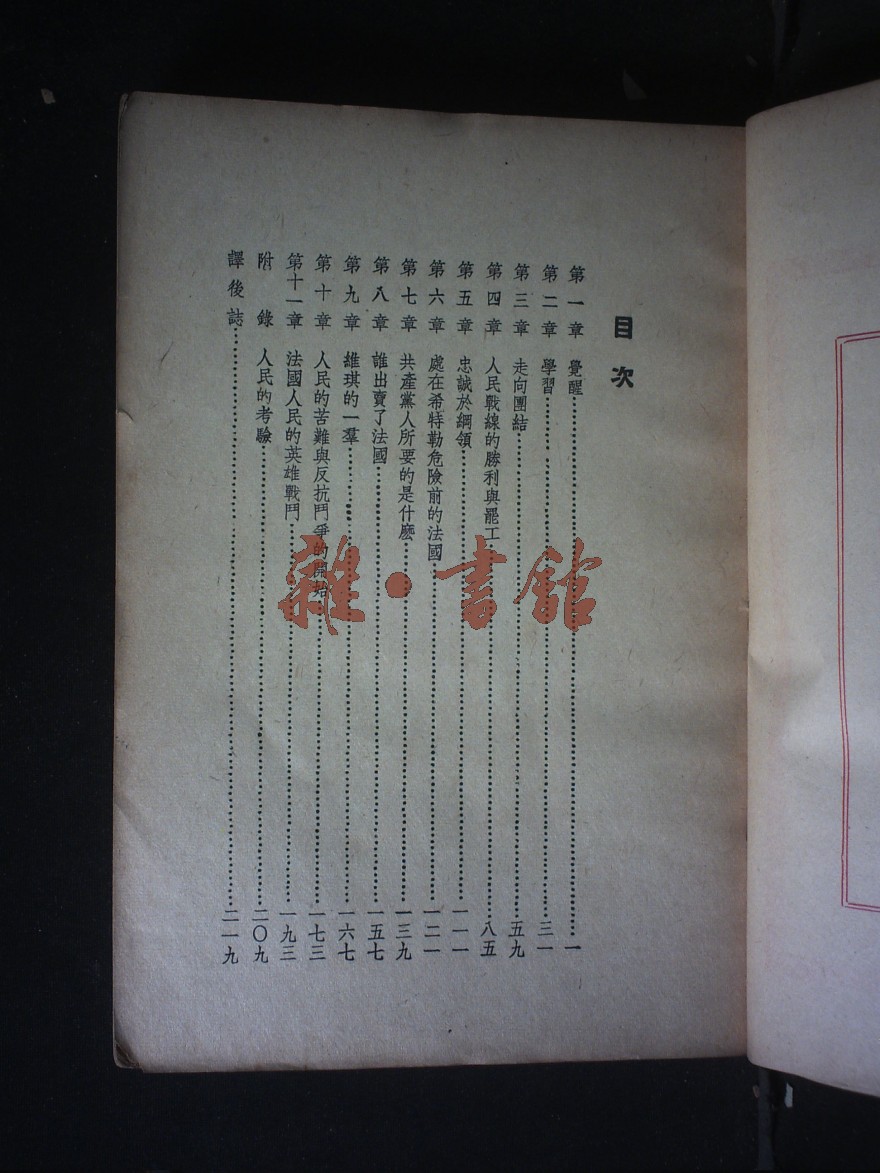 目次
第一章 覺醒……一
第二章 學習……三一
第三章 走向團結……五九
第四章 人民戰線的勝利與罷工……八五
第五章 忠誠於綱領……一一一
第六章 處在希特勒危險前的法國……一二一
第七章 共產黨人所要的是什麽……一三九
第八章 誰出賣了法國……一五七
第九章 維琪的一羣……一六七
第十章 人民的苦難與反抗鬥爭的開始……一七三
第十一章 法國人民的英雄戰鬥……一九三
附錄 人民的考驗……二〇九
譯後誌……二一九
雜·書館